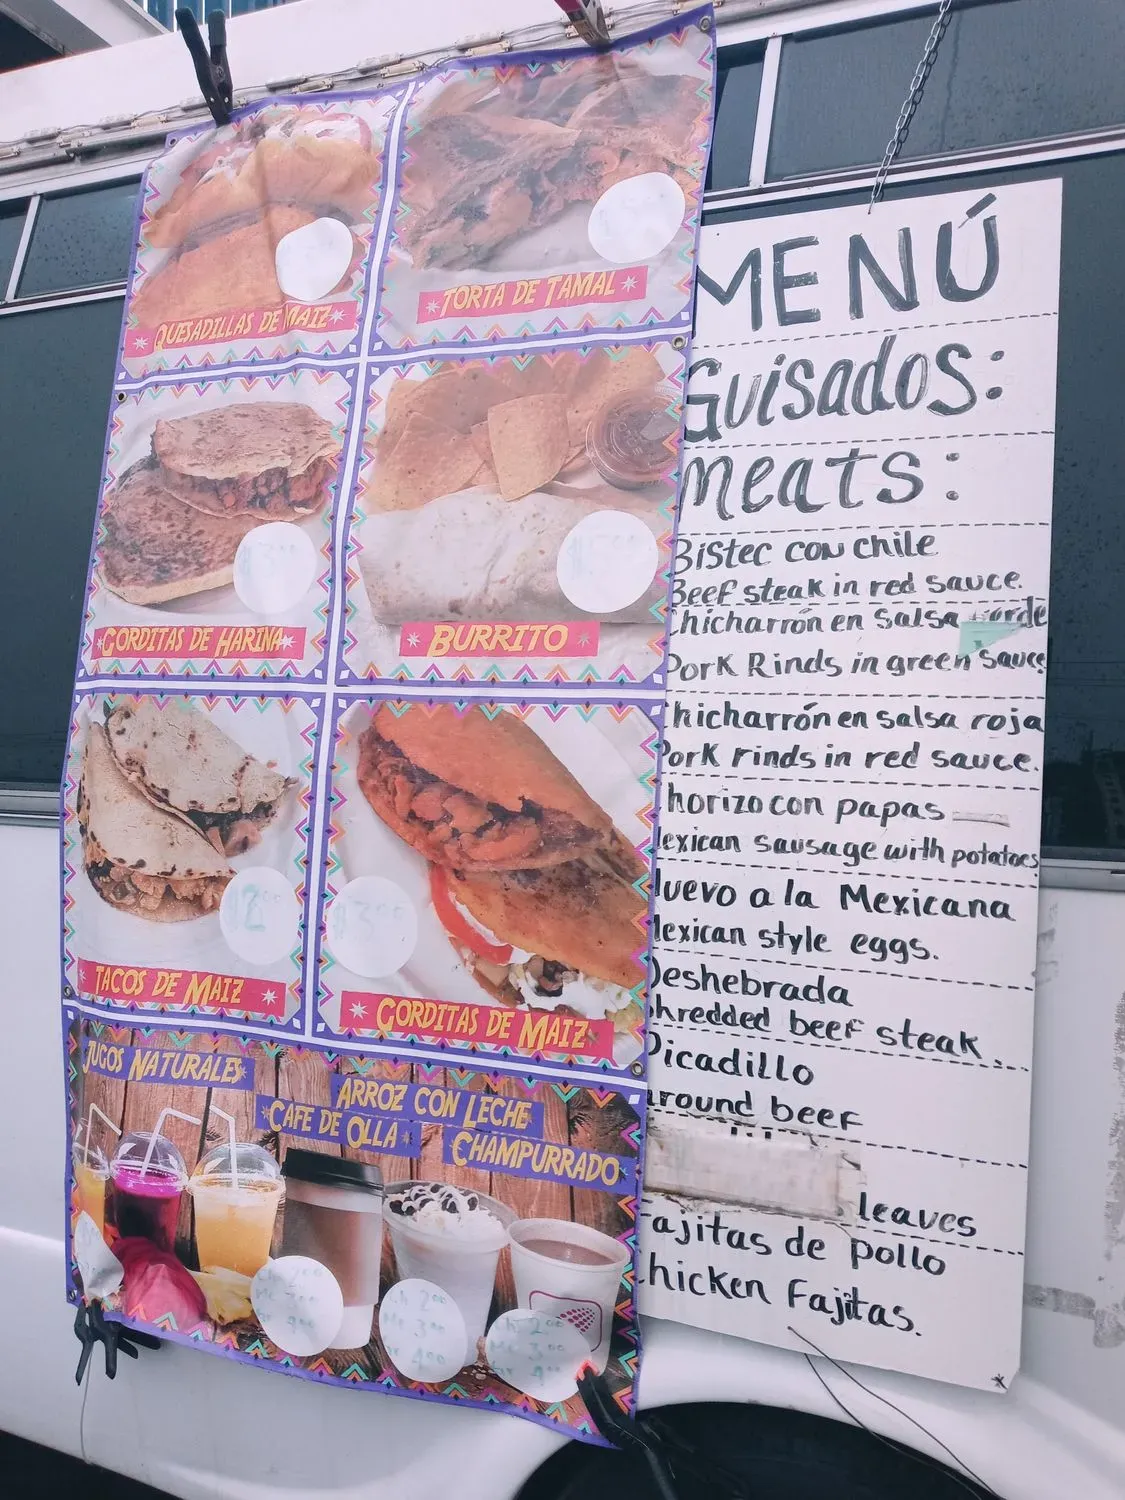 QUESADILLAS DE MAIZ
TORTA DE TAMAL
$3⁰⁰
GORDITAS DE HARINA
BURRITO
$2⁰⁰
TACOS DE MAIZ
$3⁰⁰
GORDITAS DE MAIZ
JUGOS NATURALES
ARROZ CON LECHE
CAFE DE OLLA
CHAMPURRADO
ch 2⁰⁰
Me 3⁰⁰
4⁰⁰
ch 2⁰⁰
Me 3⁰⁰
4⁰⁰
2⁰⁰
Me 3⁰⁰
4⁰⁰
MENÚ
Guisados:
meats:
Bistec con chile
Beef steak in red sauce.
hicharrón en Salsa verde
Pork Rinds in green sauce
hicharrón en salsa roja
Pork rinds in red sauce.
horizo con papas
exican sausage with potatoes
uevo a la Mexicana
exican style eggs.
Deshebrada
hredded beef steak.
Picadillo
round beef
leaves
Fajitas de pollo
hicken Fajitas.